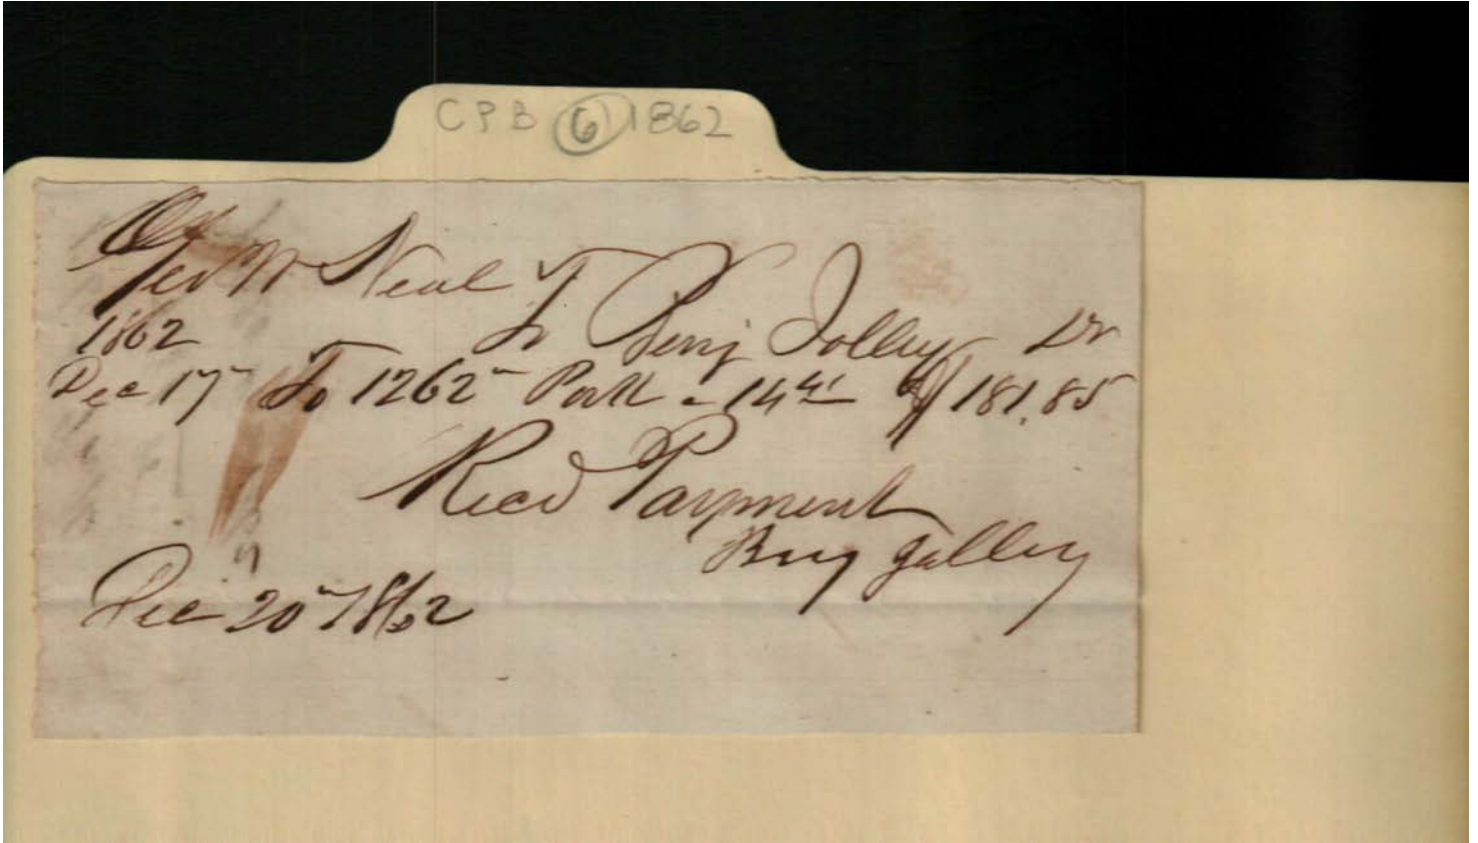 CPB 6 1862
Geo W Neal
1862 To Benj Jolley Dr
Dec 17 To 1262 Pork 181.85
Recd Payment
Benj Jolley
Dec 20 1862